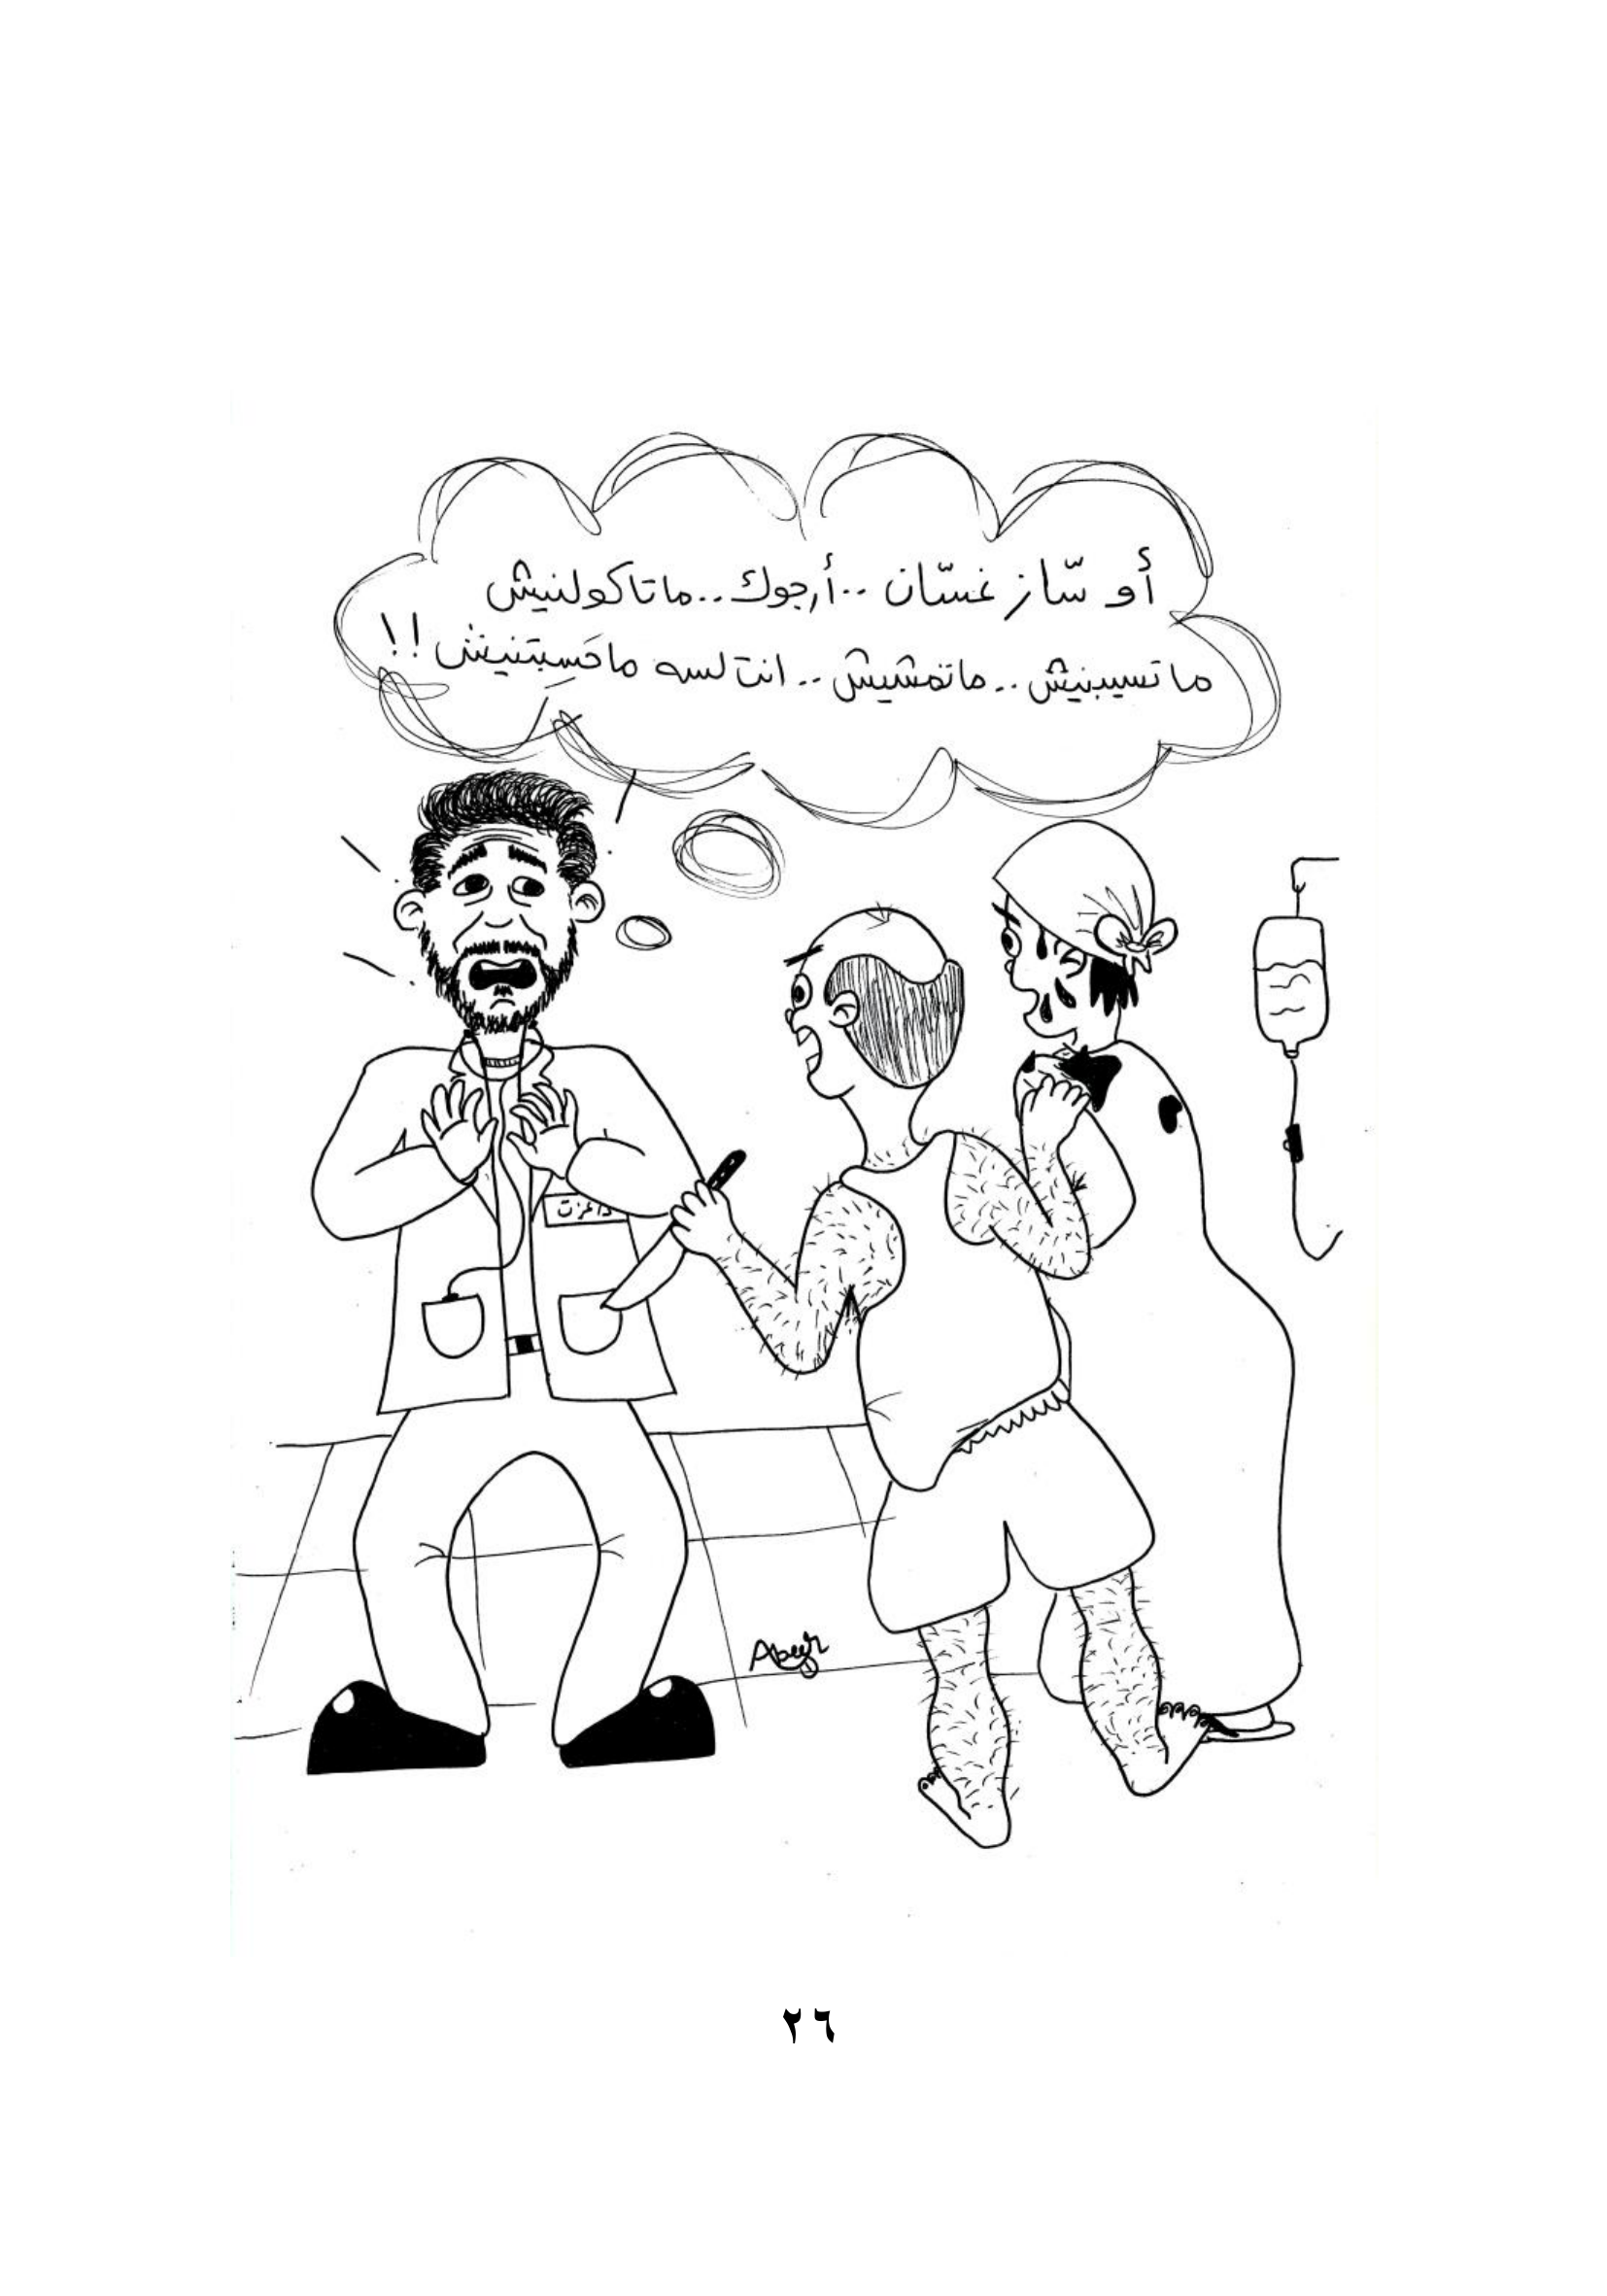 أو سّاز غسّان ..أرجوك..ماتاكولنيش
ماتسيبنيش..ماتمشيش.. انت لسه ماحَسِبتنيش!!
Abeer
٢٦